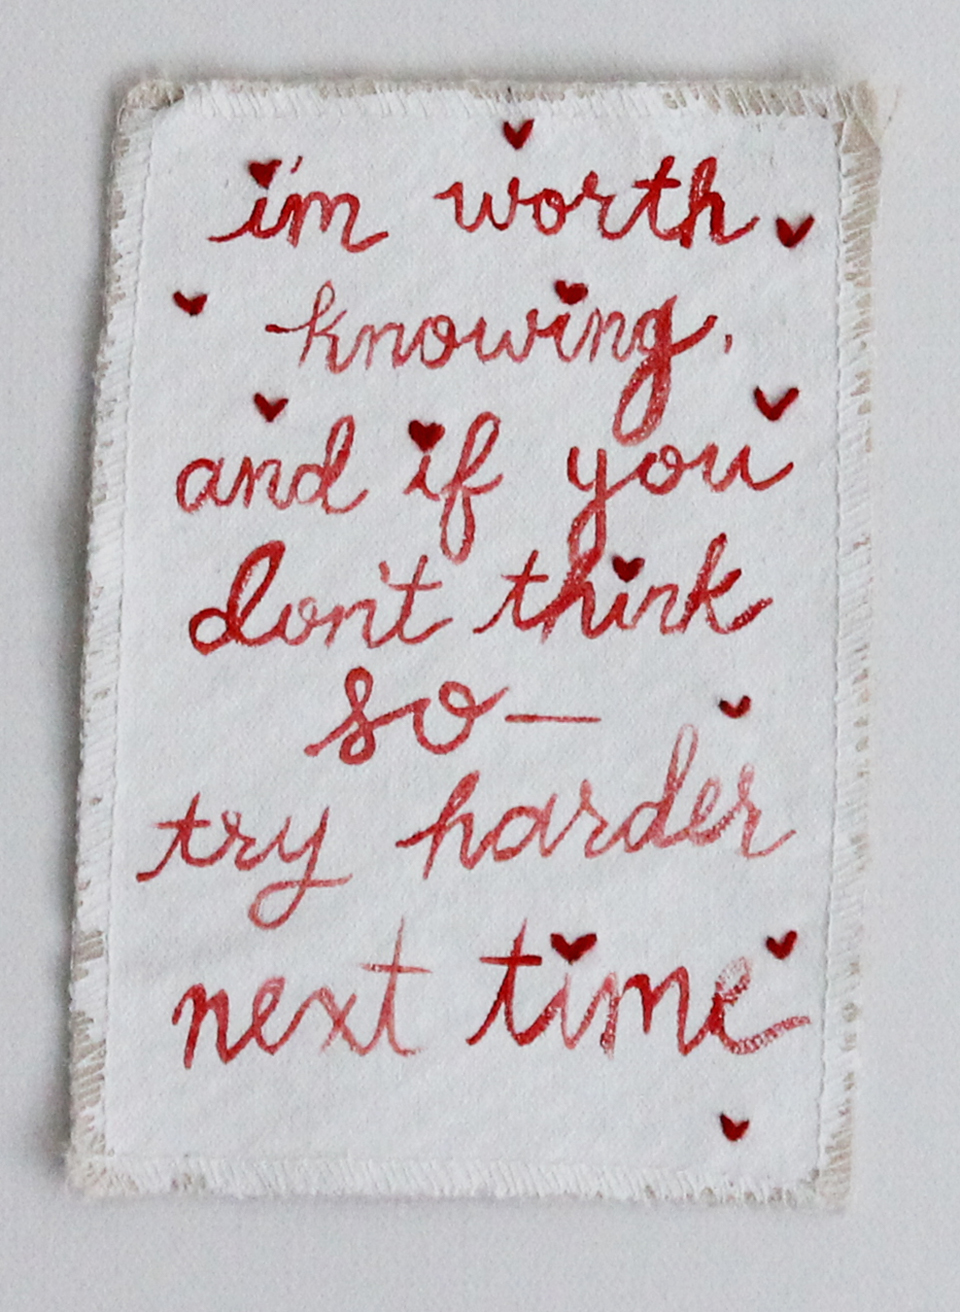 i'm worth
knowing,
and if you
don't think
so—
try harder
next time